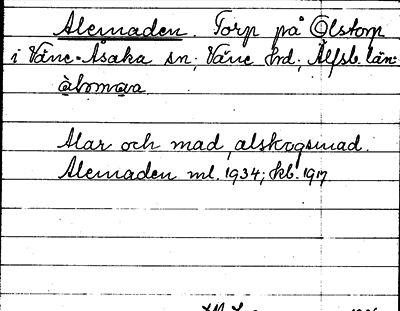 Alemaden. Torp på Olstorp
i Väne-Åsaka sn; Väne hd; Älfsb. län:
àlǝmaǝa
Alar och mad, alskogsmad.
Alemaden ml. 1934; kb. 1917